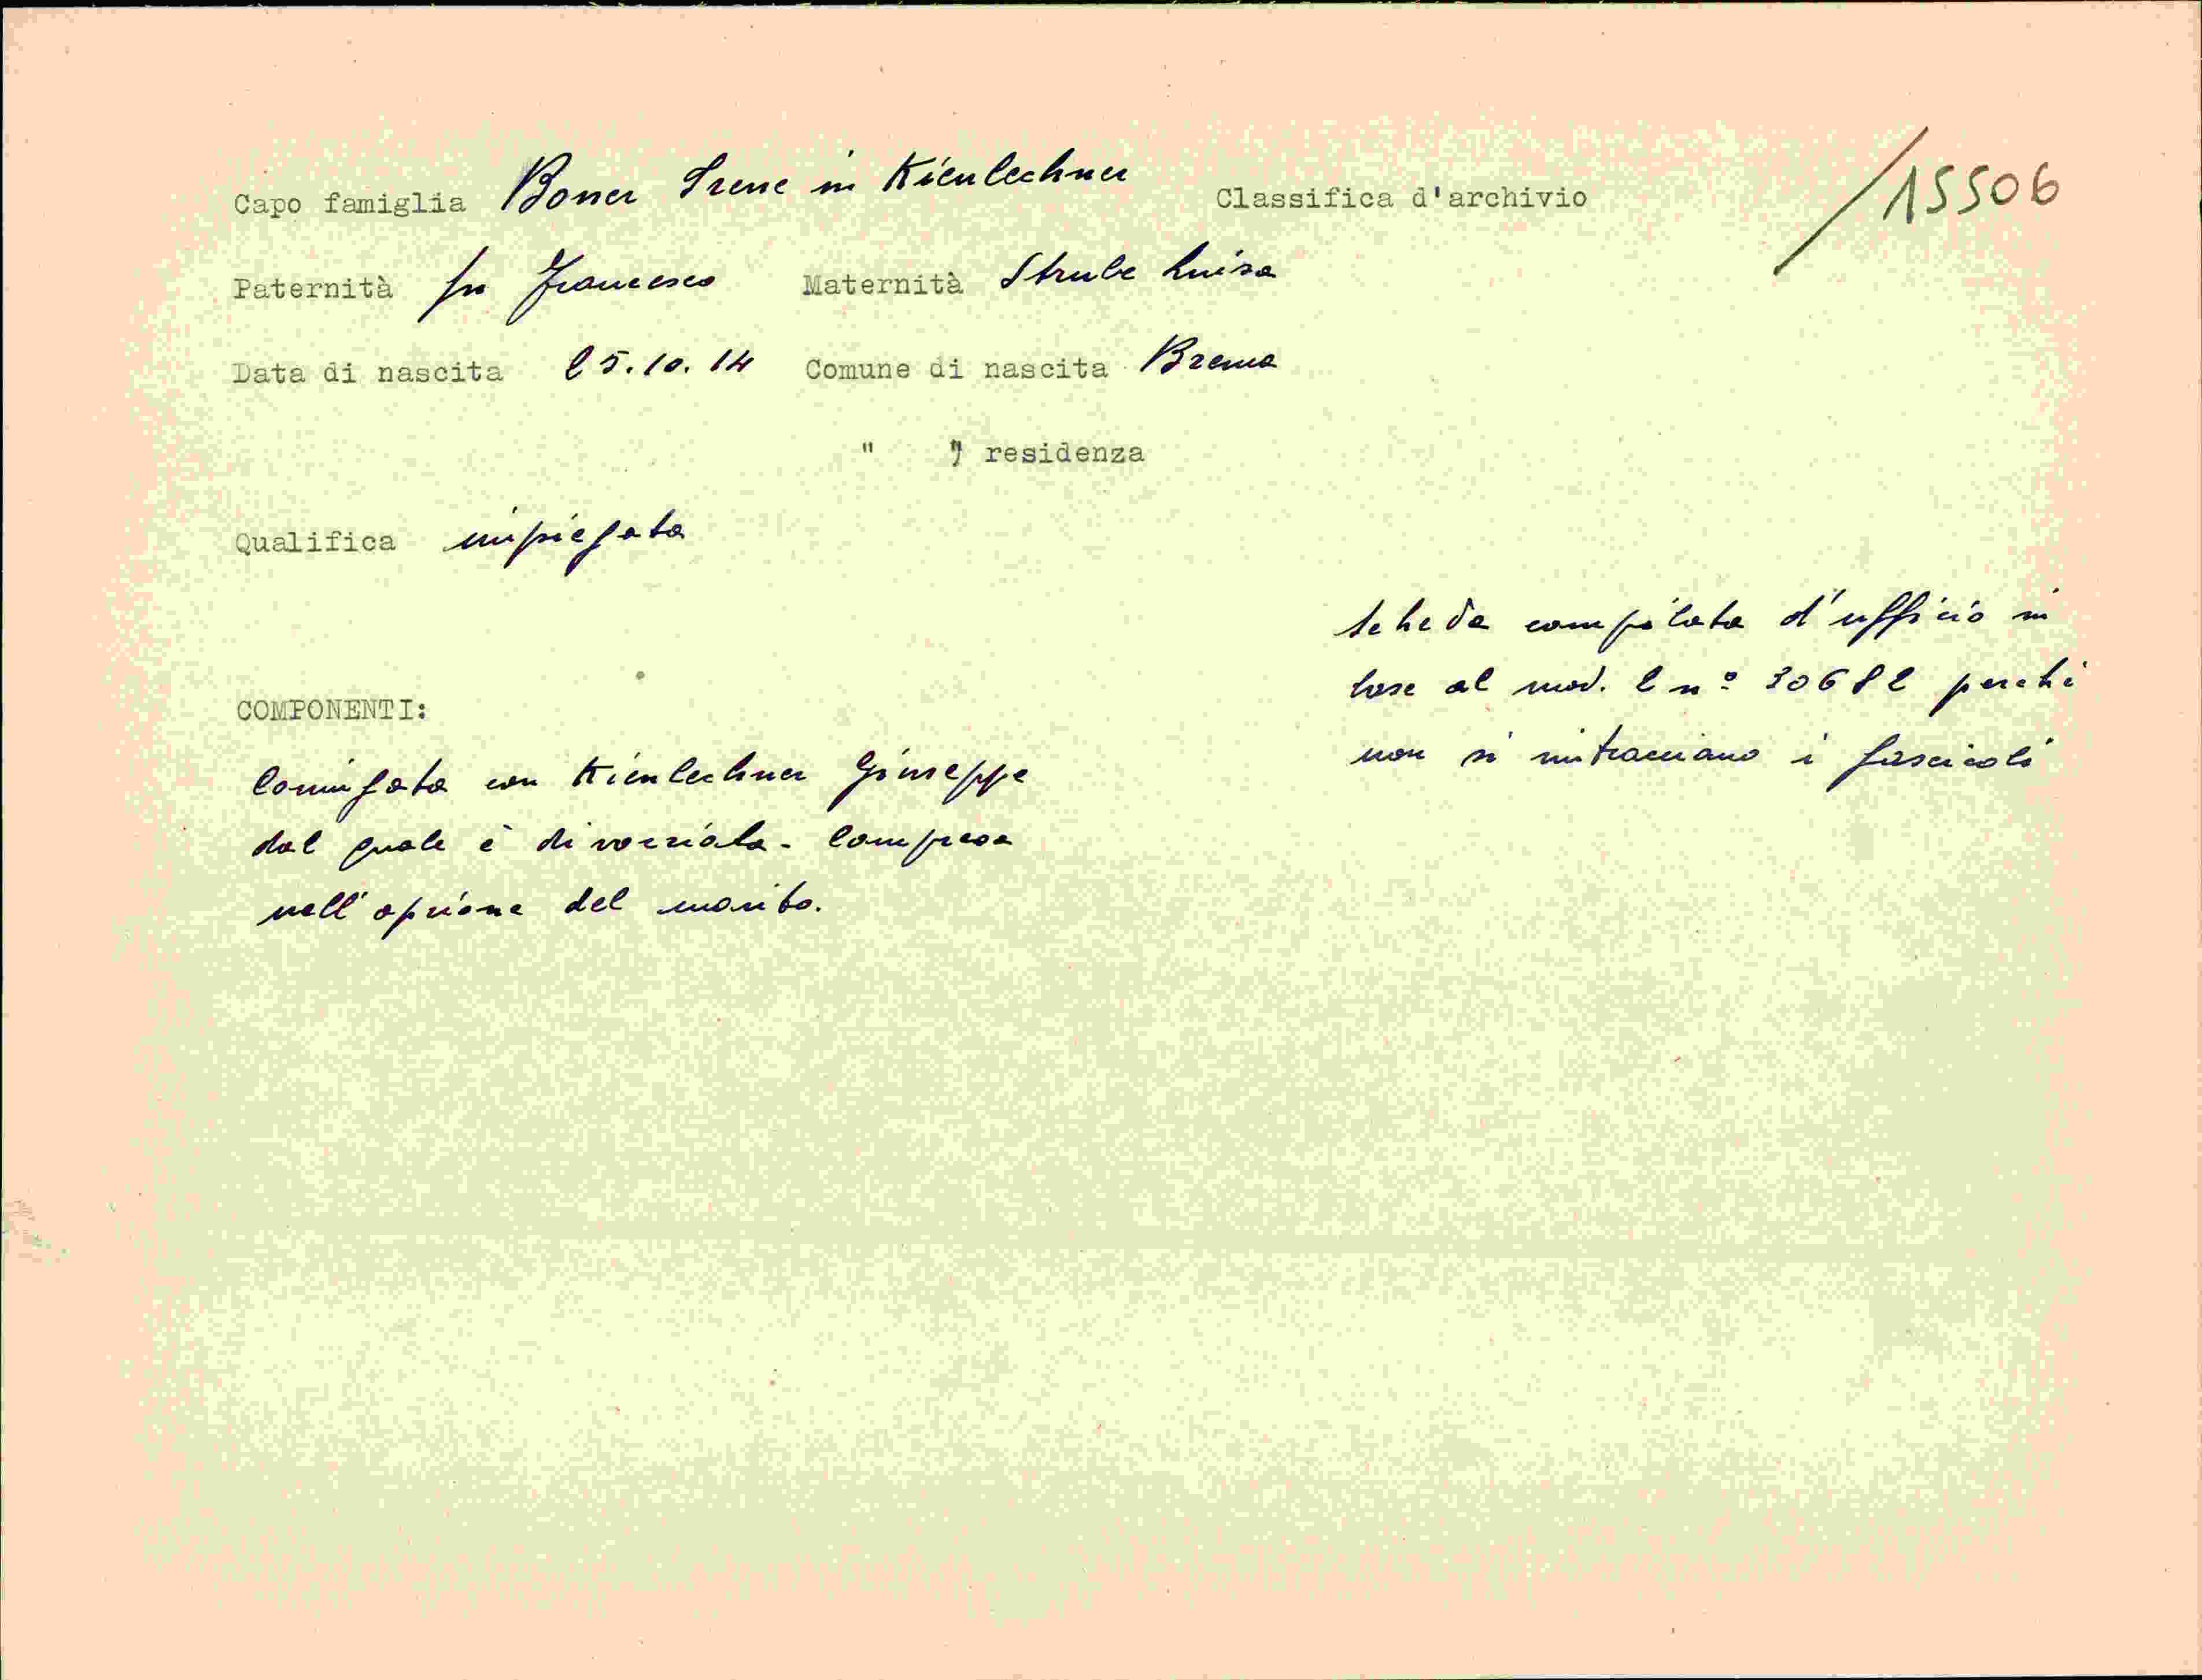 Capo famiglia Boner Irene in Kienlechner Classifica d'archivio /15506
Paternità fu Francesco Maternità Strube Luisa
Data di nascita 25.10.14 Comune di nascita Brema
" " residenza
Qualifica impiegata
Scheda compilata d'ufficio in
base al mod. 2 n° 30682 perché
non si rintracciano i fascicoli
COMPONENTI:
Coniugata con Kienlechner Giuseppe
dal quale è divorziata - Compresa
nell'opzione del marito.